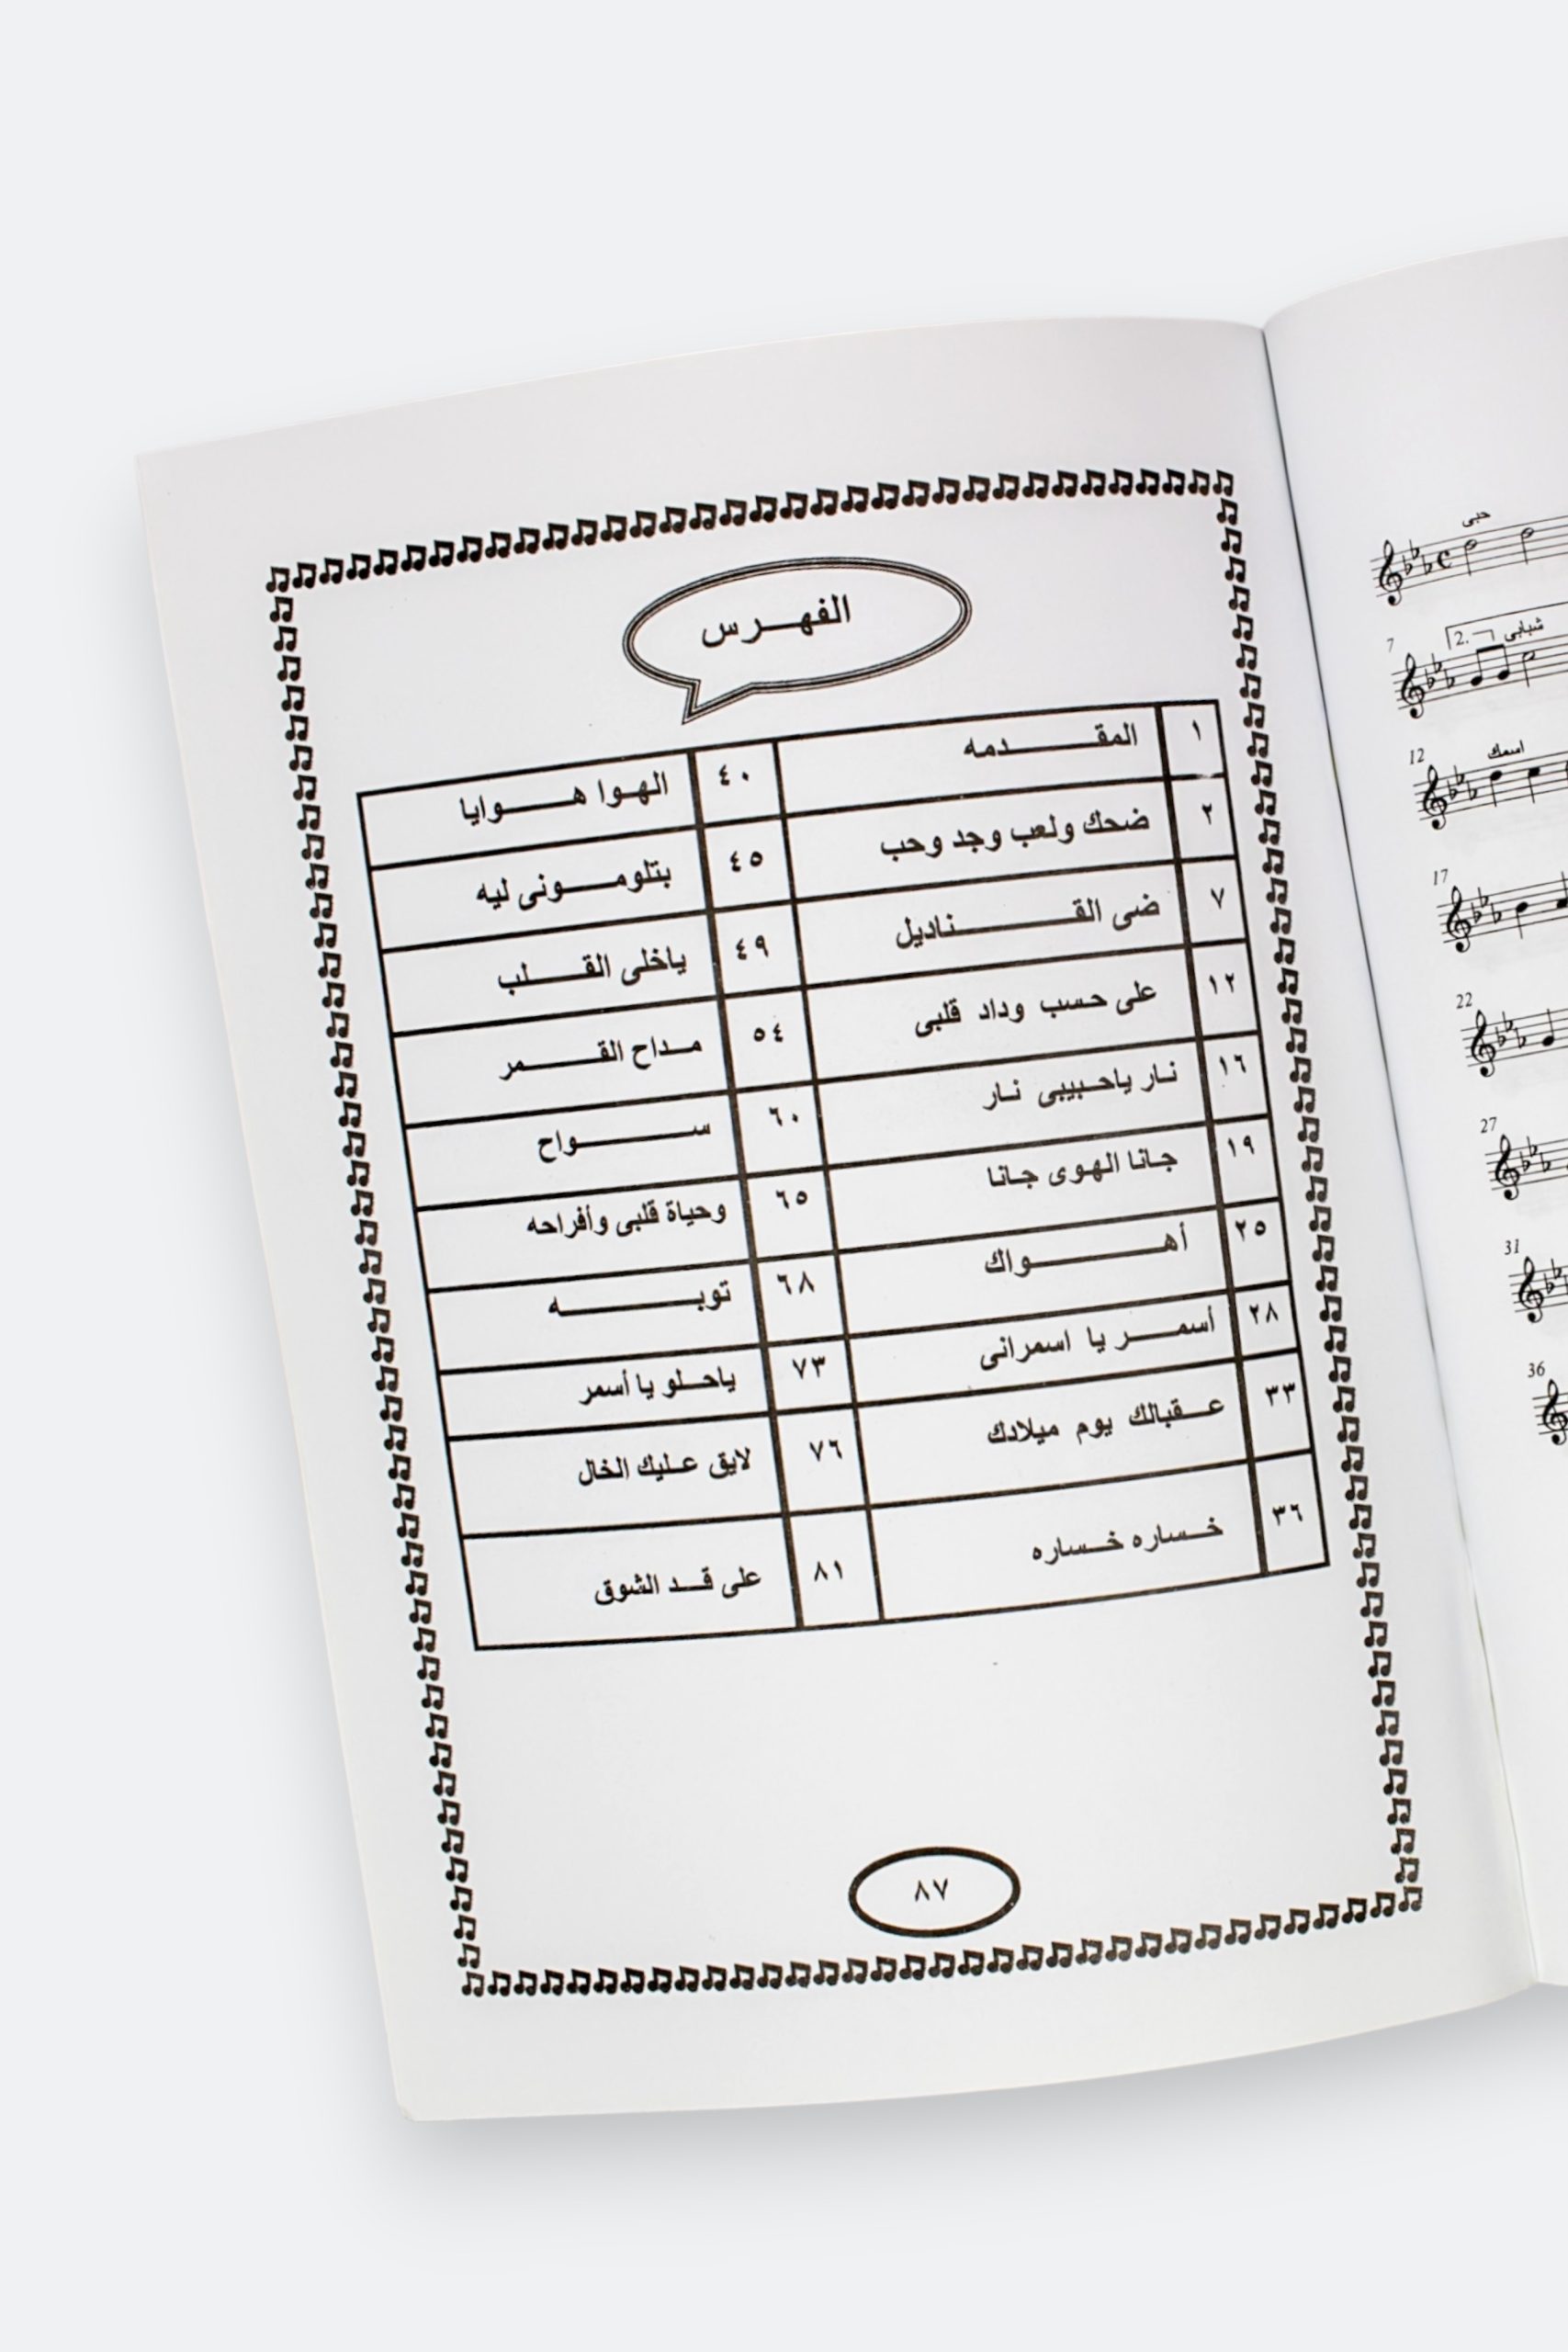 الفهرس
١ المقدمه ٤٠ الهوا هوايا
٢ ضحك ولعب وجد وحب ٤٥ بتلومونى ليه
٧ ضى القناديل ٤٩ ياخلى القلب
١٢ على حسب وداد قلبى ٥٤ مداح القمر
١٦ نار ياحبيبى نار ٦٠ سواح
١٩ جانا الهوى جانا ٦٥ وحياة قلبى وأفراحه
٢٥ أهواك ٦٨ توبه
٢٨ أسمر يا اسمرانى ٧٣ ياحلو يا أسمر
٣٣ عقبالك يوم ميلادك ٧٦ لايق عليك الخال
٣٦ خساره خساره ٨١ على قد الشوق
٨٧
حبى
7
2.
شبابى
12
اسمك
17
22
27
31
36